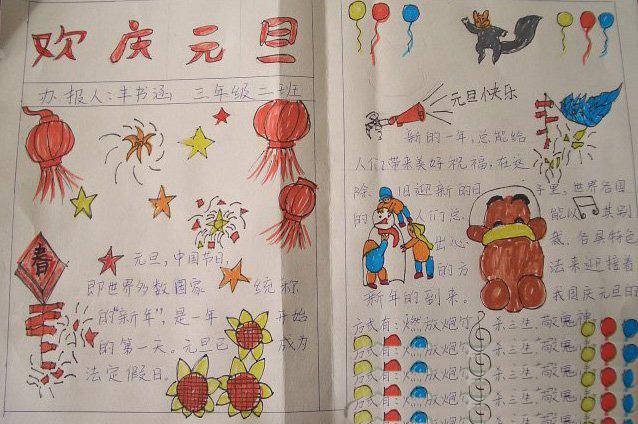 欢庆元旦
办报人:丰书涵 三年级二班
春
元旦,中国节日,
即世界多数国家 统称
的“新年”,是一年 开始
的第一天。元旦已 成为
法定假日。
元旦快乐
新的一年,总能给
人们带来美好祝福,在这
除 旧迎新的日 子里,世界各国
的 人们总 能以 其别
出心 裁、各具特色
的方 法来迎接着
新年的到来。 我国庆元旦的
方式有:燃放炮竹 杀三生 敬鬼神
方式有:燃放炮竹 杀三生 敬鬼神
方式有:燃放炮竹 杀三生 敬鬼神
方式有:燃放炮竹 杀三生 敬鬼神
方式有:燃放炮竹 杀三生 敬鬼神